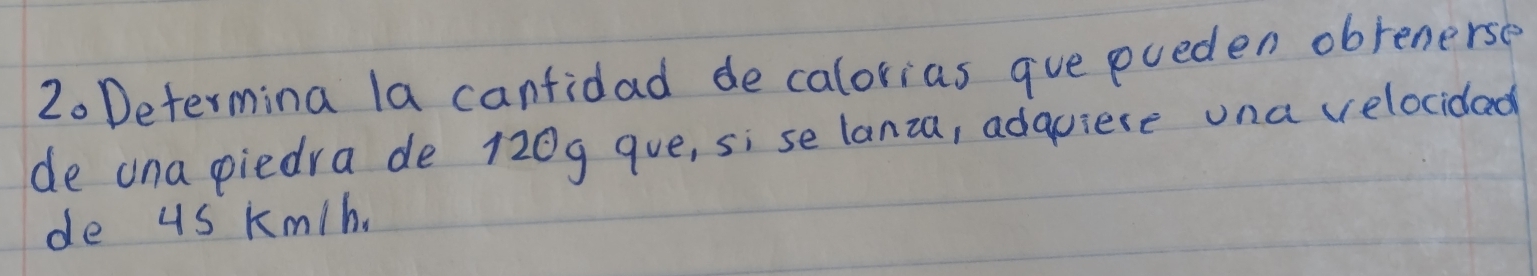 2. Determina la cantidad de calorias que pueden obtenerse
de una piedra de 120g que, si se lanza, adquiere una velocidad
de 45 Km/h.